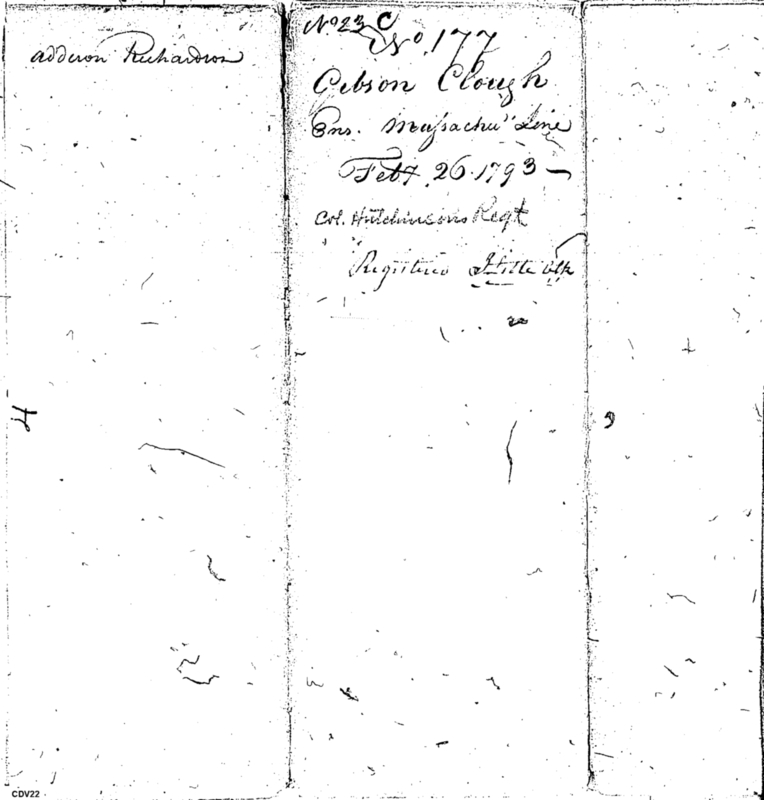 Addison Richardson
No 23 C
No. 177
Gibson Clough
Ens. Massachu" Line
Feby. 26. 1793 —
Col. Hutchinsons Regt
Registered
4
9
CDV22